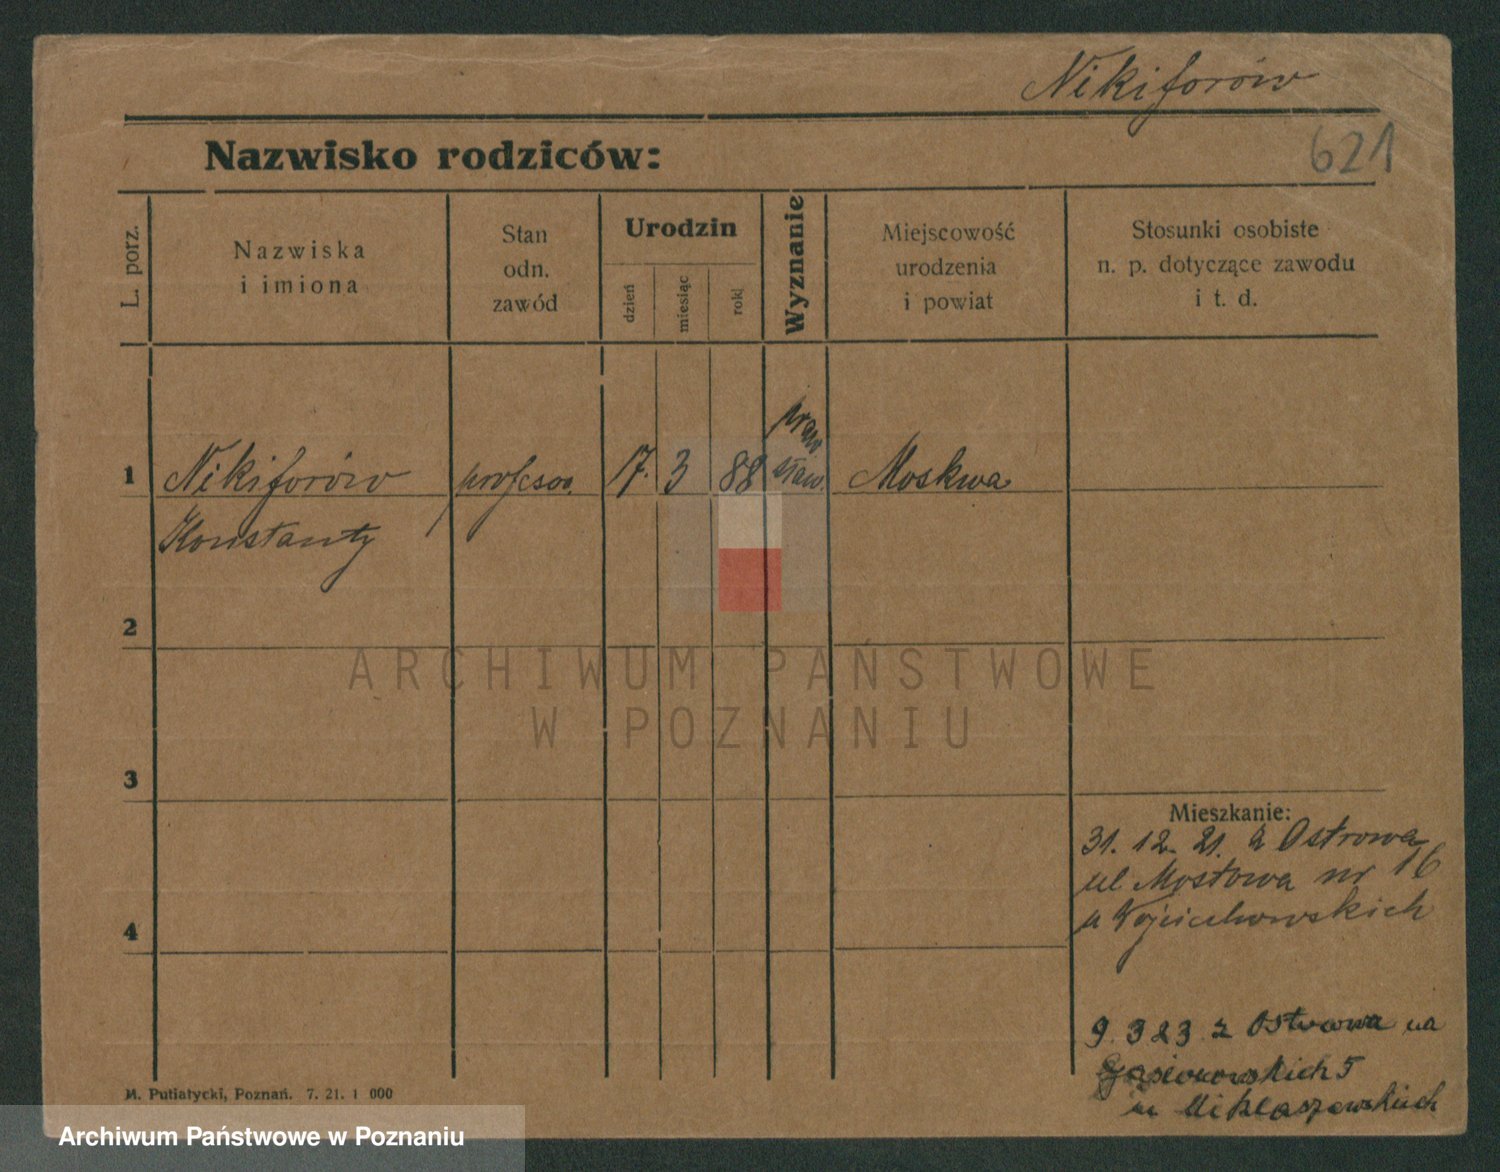 Nikiforów
621
Nazwisko rodziców:
L. porz.
Nazwiska
i imiona
Stan
odn.
zawód
Urodzin
dzień
miesiąc
rok
Wyznanie
Miejscowość
urodzenia
i powiat
Stosunki osobiste
n. p. dotyczące zawodu
i t. d.
1
Nikiforów
Konstanty
profesor.
17.
3
88
praw
sław.
Moskwa
2
3
4
ARCHIWUM PAŃSTWOWE
W POZNANIU
Mieszkanie:
31. 12. 21. z Ostrowa
ul Mostowa nr 16
u Wojciechowskich
9. 3 23 z Ostrowa na
Gąsiorowskich 5
u Miklaszewskich
M. Putiatycki, Poznań. 7. 21. 1 000
Archiwum Państwowe w Poznaniu